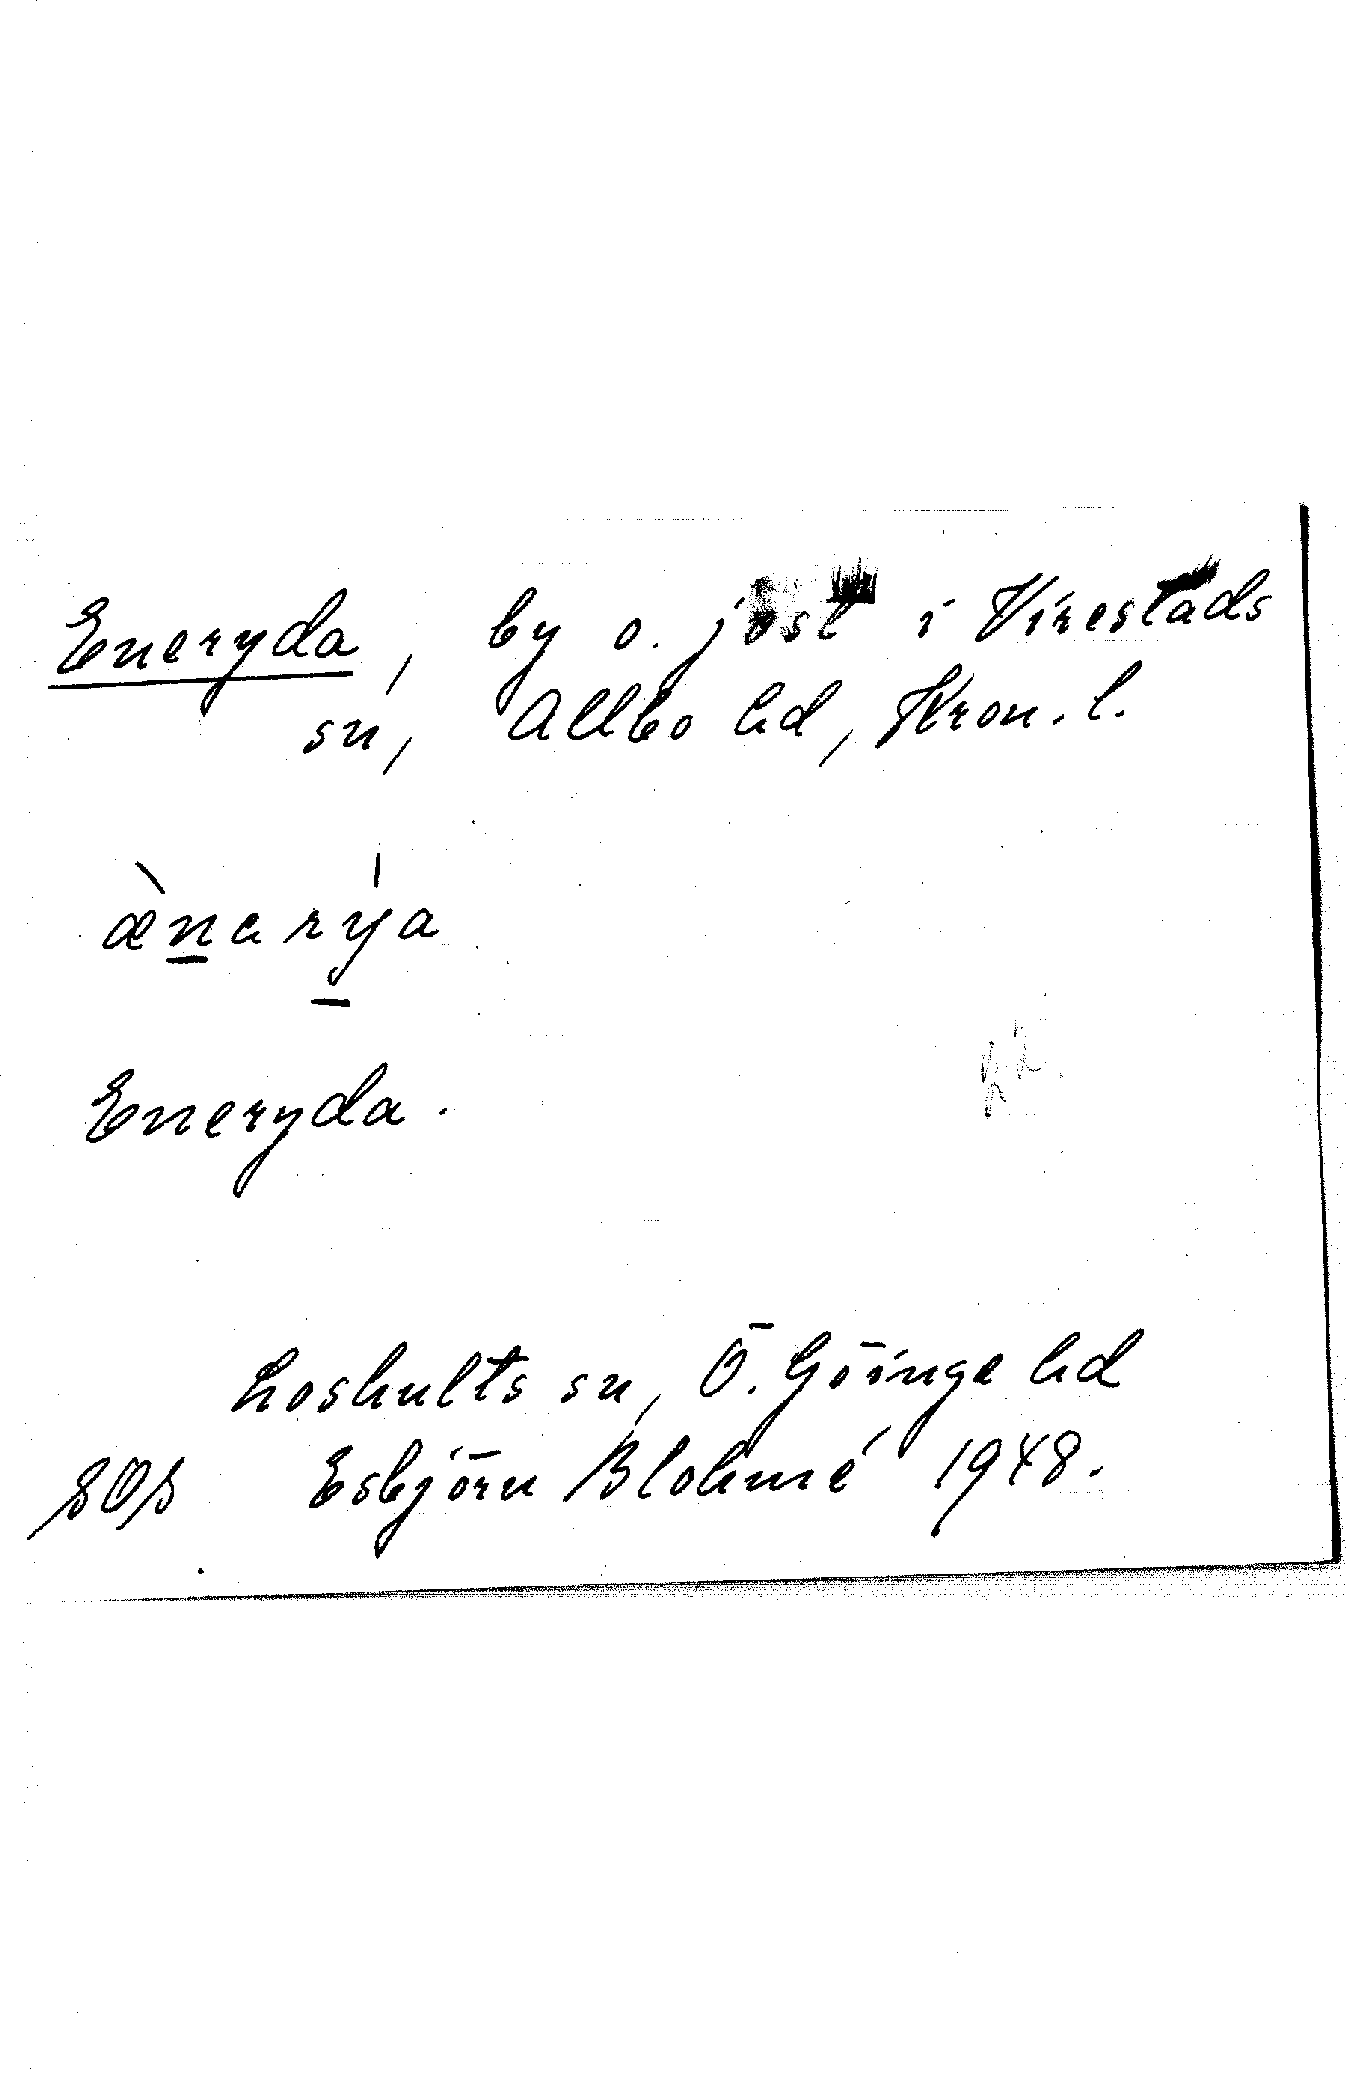 Eneryda, by o. jvst i Virestads
sn, Allbo hd, Kron. l.
ænarya
Eneryda.
Loshults sn, Ö. Göinge hd
SOS Esbjörn Blohmé 1948.